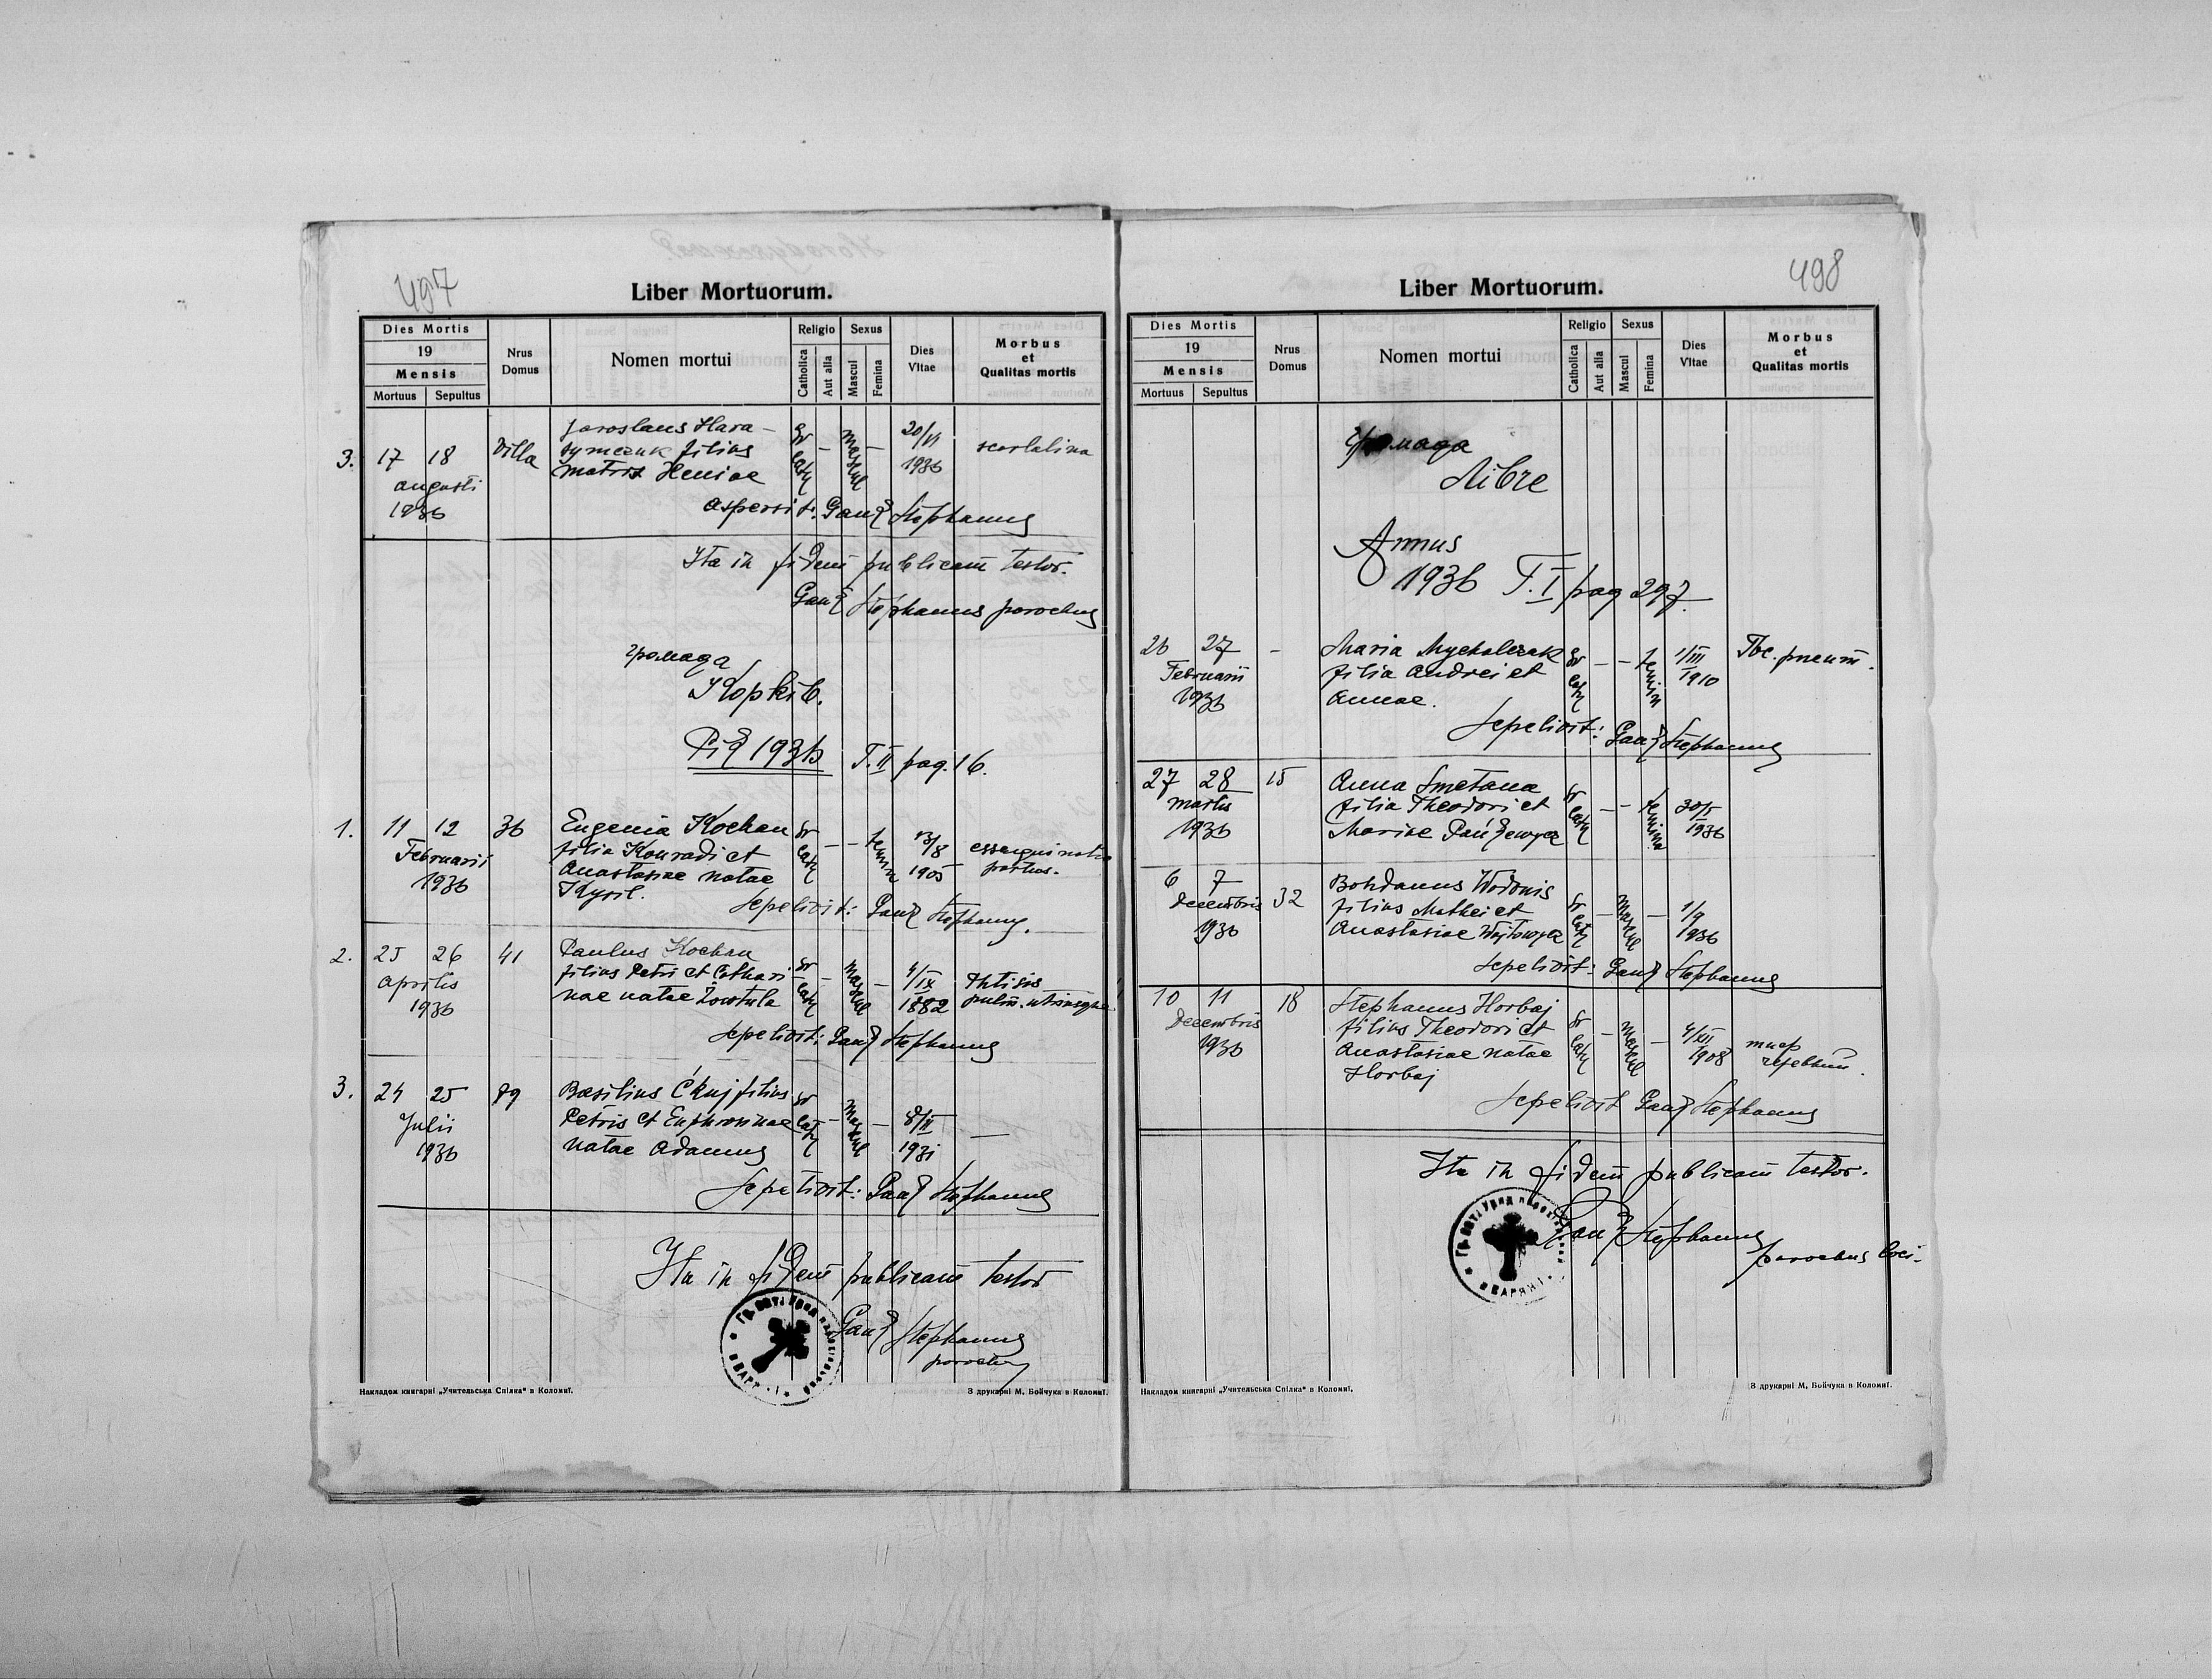 497
Liber Mortuorum.
Dies Mortis
19
Mensis
Mortuus Sepultus
Nrus Domus
Nomen mortui
Religio
Catholica
Aut alia
Sexus
Mascul
Femina
Dies Vitae
Morbus et Qualitas mortis
3. 17 18 Villa Jaroslaus Hara- Gr — 20/VI
symczuk filius cath mascul 1936
matris Heniae
augusti
1936
aspersit: Stephanus
Ita in fidem publicam testor.
Stephanus parochus
громада
Kopkib.
Рік 1936 T. II pag. 16.
1. 11 12 36 Eugenia Kochan Gr — — 13/8
Februarii filia Konradi et cath femin 1905
1936 Anastasiae natae partus.
Kyril.
Sepelivit: Stephanus.
2. 25 26 41 Paulus Kochan Gr — mascul — 4/IX
aprilis filius Petri et Cathari- cath 1882
1936 nae natae pulm. utriusque
Sepelivit: Stephanus
3. 24 25 89 Basilius filius Gr — mascul — 8/II —
Julii Petris et Euphrosinae cath 1931
1936 natae Adamus
Sepelivit: Stephanus
Ita in fidem publicam testor
Stephanus
parochus
Накладом книгарні „Учительська Спілка“ в Коломиї.
З друкарні М. Бойчука в Коломиї.
498
Liber Mortuorum.
Dies Mortis
19
Mensis
Mortuus Sepultus
Nrus Domus
Nomen mortui
Religio
Catholica
Aut alia
Sexus
Mascul
Femina
Dies Vitae
Morbus et Qualitas mortis
громада
Annus
1936 T. I pag 297.
26 27 - Maria Mychalczak Gr — — 1/III Tbc. pneum.
Februarii filia Andrei et cath femin 1910
1936 Annae.
Sepelivit: Stephanus
27 28 15 Anna Smetana Gr — — 30/I
martis filia Theodori et cath femin 1936
1936 Mariae
6 7 32 Bohdanus Wodonis Gr — mascul — 1/9
Decembris filius Mathei et cath 1936
1936 Anastasiae Wojtowycz
Sepelivit: Stephanus
10 11 18 Stephanus Horbaj Gr — mascul — 4/XII
Decembris filius Theodori et cath 1908
1936 Anastasiae natae
Horbaj
Sepelivit Stephanus
Ita in fidem publicam testor.
Stephanus
parochus loci.
Накладом книгарні „Учительська Спілка“ в Коломиї.
З друкарні М. Бойчука в Коломиї.